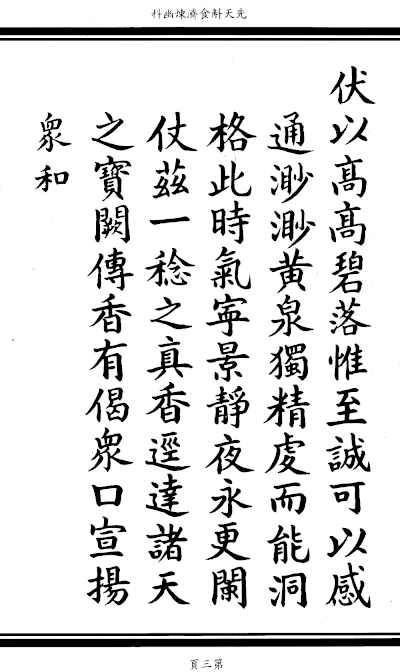 先天斛食濟煉幽科
伏以髙髙碧落惟至誠可以感
通渺渺黄泉獨精虔而能洞
格此時氣寧景靜夜永更闌
仗茲一稔之真香逕達諸天
之寶闕傳香有偈衆口宣揚
衆和
第三頁